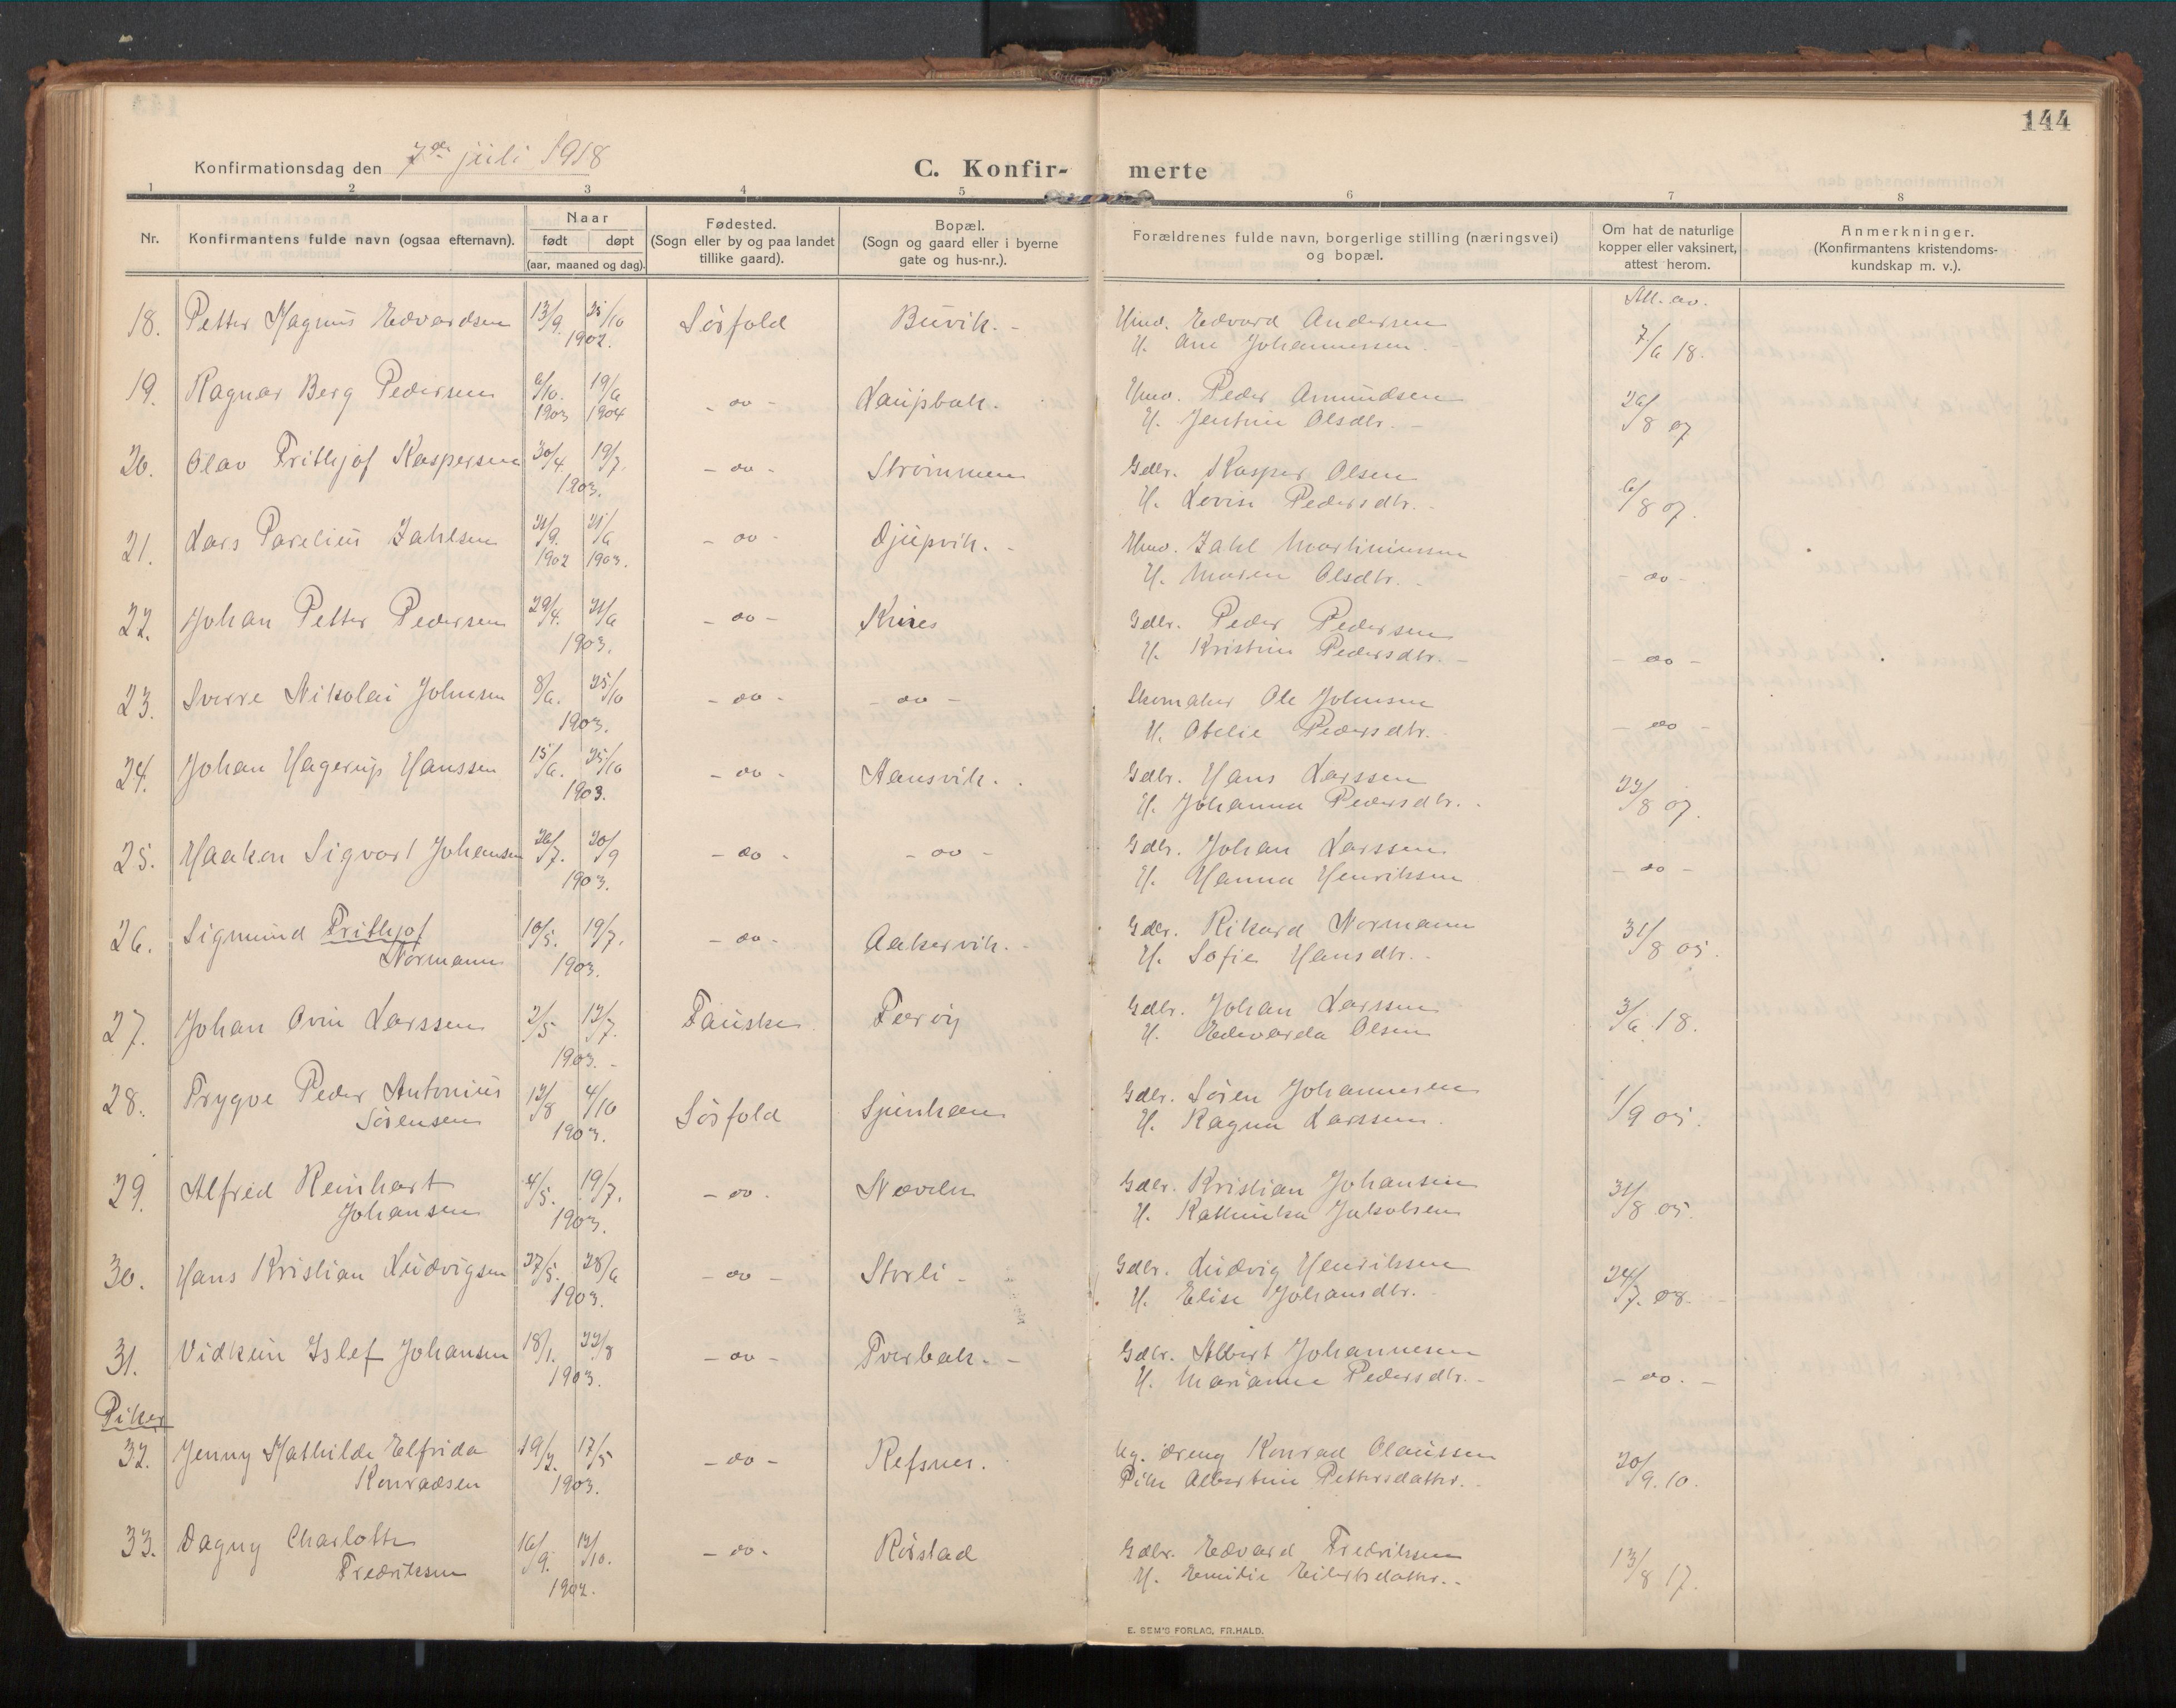 144
Konfirmationsdag den 7de juli 1918
C. Konfir- merte
1 2 3 4 5 6 7 8
Nr. Konfirmantens fulde navn (ogsaa efternavn). Naar født døpt (aar, maaned og dag). Fødested. (Sogn eller by og paa landet tillike gaard). Bopæl. (Sogn og gaard eller i byerne gate og hus-nr.). Forældrenes fulde navn, borgerlige stilling (næringsvei) og bopæl. Om hat de naturlige kopper eller vaksinert, attest herom. Anmerkninger. (Konfirmantens kristendoms-kundskap m. v.).
Att. av.
18. Petter Magnus Edvardsen 13/9. 25/10 Sørfold Buvik. - Hmd. Edvard Andersen 7/6 18.
1902. H. Ane Johannessen
19. Ragnar Berg Pedersen 6/10. 19/6 - do - Laupbak. Hmd. Peder Amundsen 26/8 07
1903 1904 H. Jentine Olsdtr. -
20. Olav Frithjof Kaspersen 30/4. 19/7. - do - Strømmen Gdbr. Kasper Olsen 6/8 07.
1903. H. Lovise Pedersdtr. -
21. Lars Parelius Zahlsen 21/9. 21/6 - do - Djupvik. - Hmd. Zahl Martiniussen - do -
1902 1903. H. Maren Olsdtr. -
22. Johan Petter Pedersen 29/4. 21/6 - do - Kines Gdbr. Peder Pedersen - do -
1903. H. Kristine Pedersdtr. -
23. Sverre Nikolai Johnsen 8/6. 25/10 - do - - do - Skomaker Ole Johnsen - do -
1903. H. Obelie Pedersdtr. -
24. Johan Hagerup Hanssen 15/6. 25/10 - do - Hansvik. . Gdbr. Hans Larssen 22/8 07.
1903. H. Johanna Pedersdtr. -
25. Haakon Sigvart Johansen 26/7. 20/9 - do - - do - Gdbr. Johan Larssen - do -
1903. H. Hanna Henriksen
26. Sigmund Frithjof 10/5. 19/7. - do - Aakervik. - Gdbr. Rikard Normann 31/8 05.
Normann 1903. H. Sofie Hansdtr. -
27. Johan Ovin Larssen 2/5 12/7. Fauske Færøy Gdbr. Johan Larssen 3/6 18.
1903. - H. Edvarda Olsen
28. Trygve Peder Antonius 12/8 4/10 Sørfold Sjunhavn Gdbr. Søren Johannesen 1/9 05.
Sørensen 1903. H. Ragna Larssen.
29. Alfred Reinhart 4/5. 19/7. - do - Nævelu Gdbr. Kristian Johansen 31/8 05.
Johansen 1903. H. Kathinka Jakobsen
30. Hans Kristian Ludvigsen 27/5. 28/6 - do - Storli - Gdbr. Ludvig Henriksen 24/7. 08. -
1903. H. Elise Johansdtr. -
31. Vidkun Islef Johansen 18/1. 22/8 - do - Tverbak. - Gdbr. Albert Johannesen - do. -
1903. H. Marianne Pedersdtr. -
Piker
32. Jenny Mathilde Elfrida 19/2. 17/5 - do - Refsnes. Ug. dreng Konrad Olaussen 20/9. 10.
Konradsen 1903. Pike Albertine Pettersdatter. -
33. Dagny Charlotte 16/9. 12/10. - do - Rørstad Gdbr. Edvard Fredriksen 13/8 17.
Fredriksen 1902. H. Emilie Eilertsdatter. -
E. SEM'S FORLAG, FR.HALD.